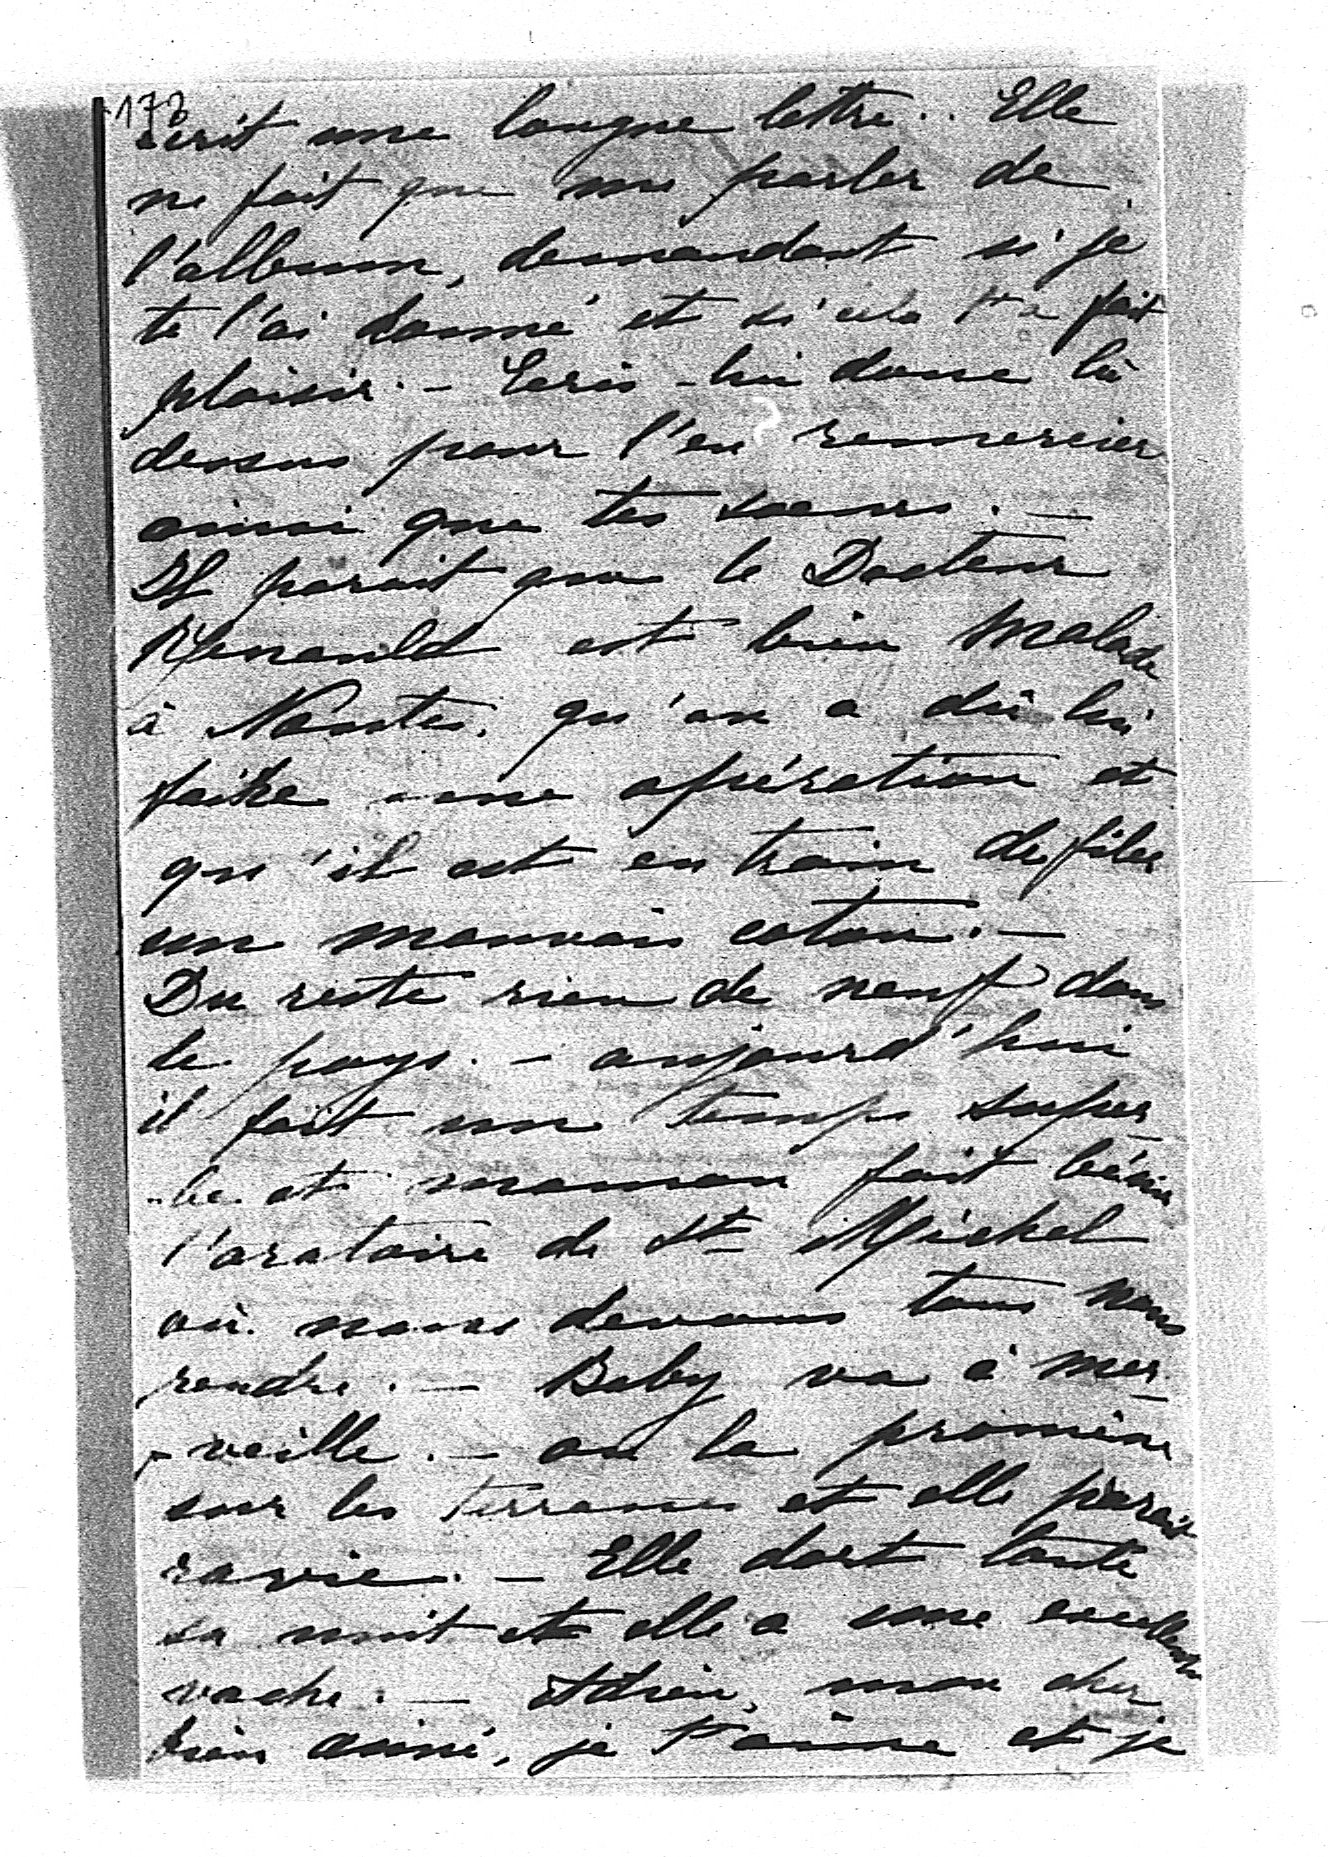 173
écrit une longue lettre.. Elle
ne fait que me parler de
l'album, demandant si je
te l'ai donné et si cela t'a fait
plaisir. — Ecris-lui donc là
dessus pour l'en remercier
ainsi que tes sœurs. —
Il parait que le Docteur
est bien malade
à Nantes, qu'on a dû lui
faire une opération et
qu'il est en train de filer
un mauvais coton. —
Du reste rien de neuf dans
le pays. — aujourd'hui
il fait un temps super
-be et maman fait bénir
l'oratoire de St Michel
où nous devons tous nous
rendre. — Baby va à mer-
-veille. — on la promène
sur les terrasses et elle parait
ravie. — Elle dort toute
sa nuit et elle a une excellente
vache. — Adieu, mon cher
bien aimé, je t'aime et je